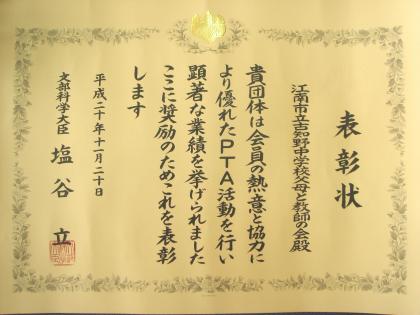 表彰状
江南市立古知野中学校父母と教師の会殿
貴団体は会員の熱意と協力に
より優れたPTA活動を行い
顕著な業績を挙げられました
ここに奨励のためこれを表彰
します
平成二十年十一月二十日
文部科学大臣 塩谷 立